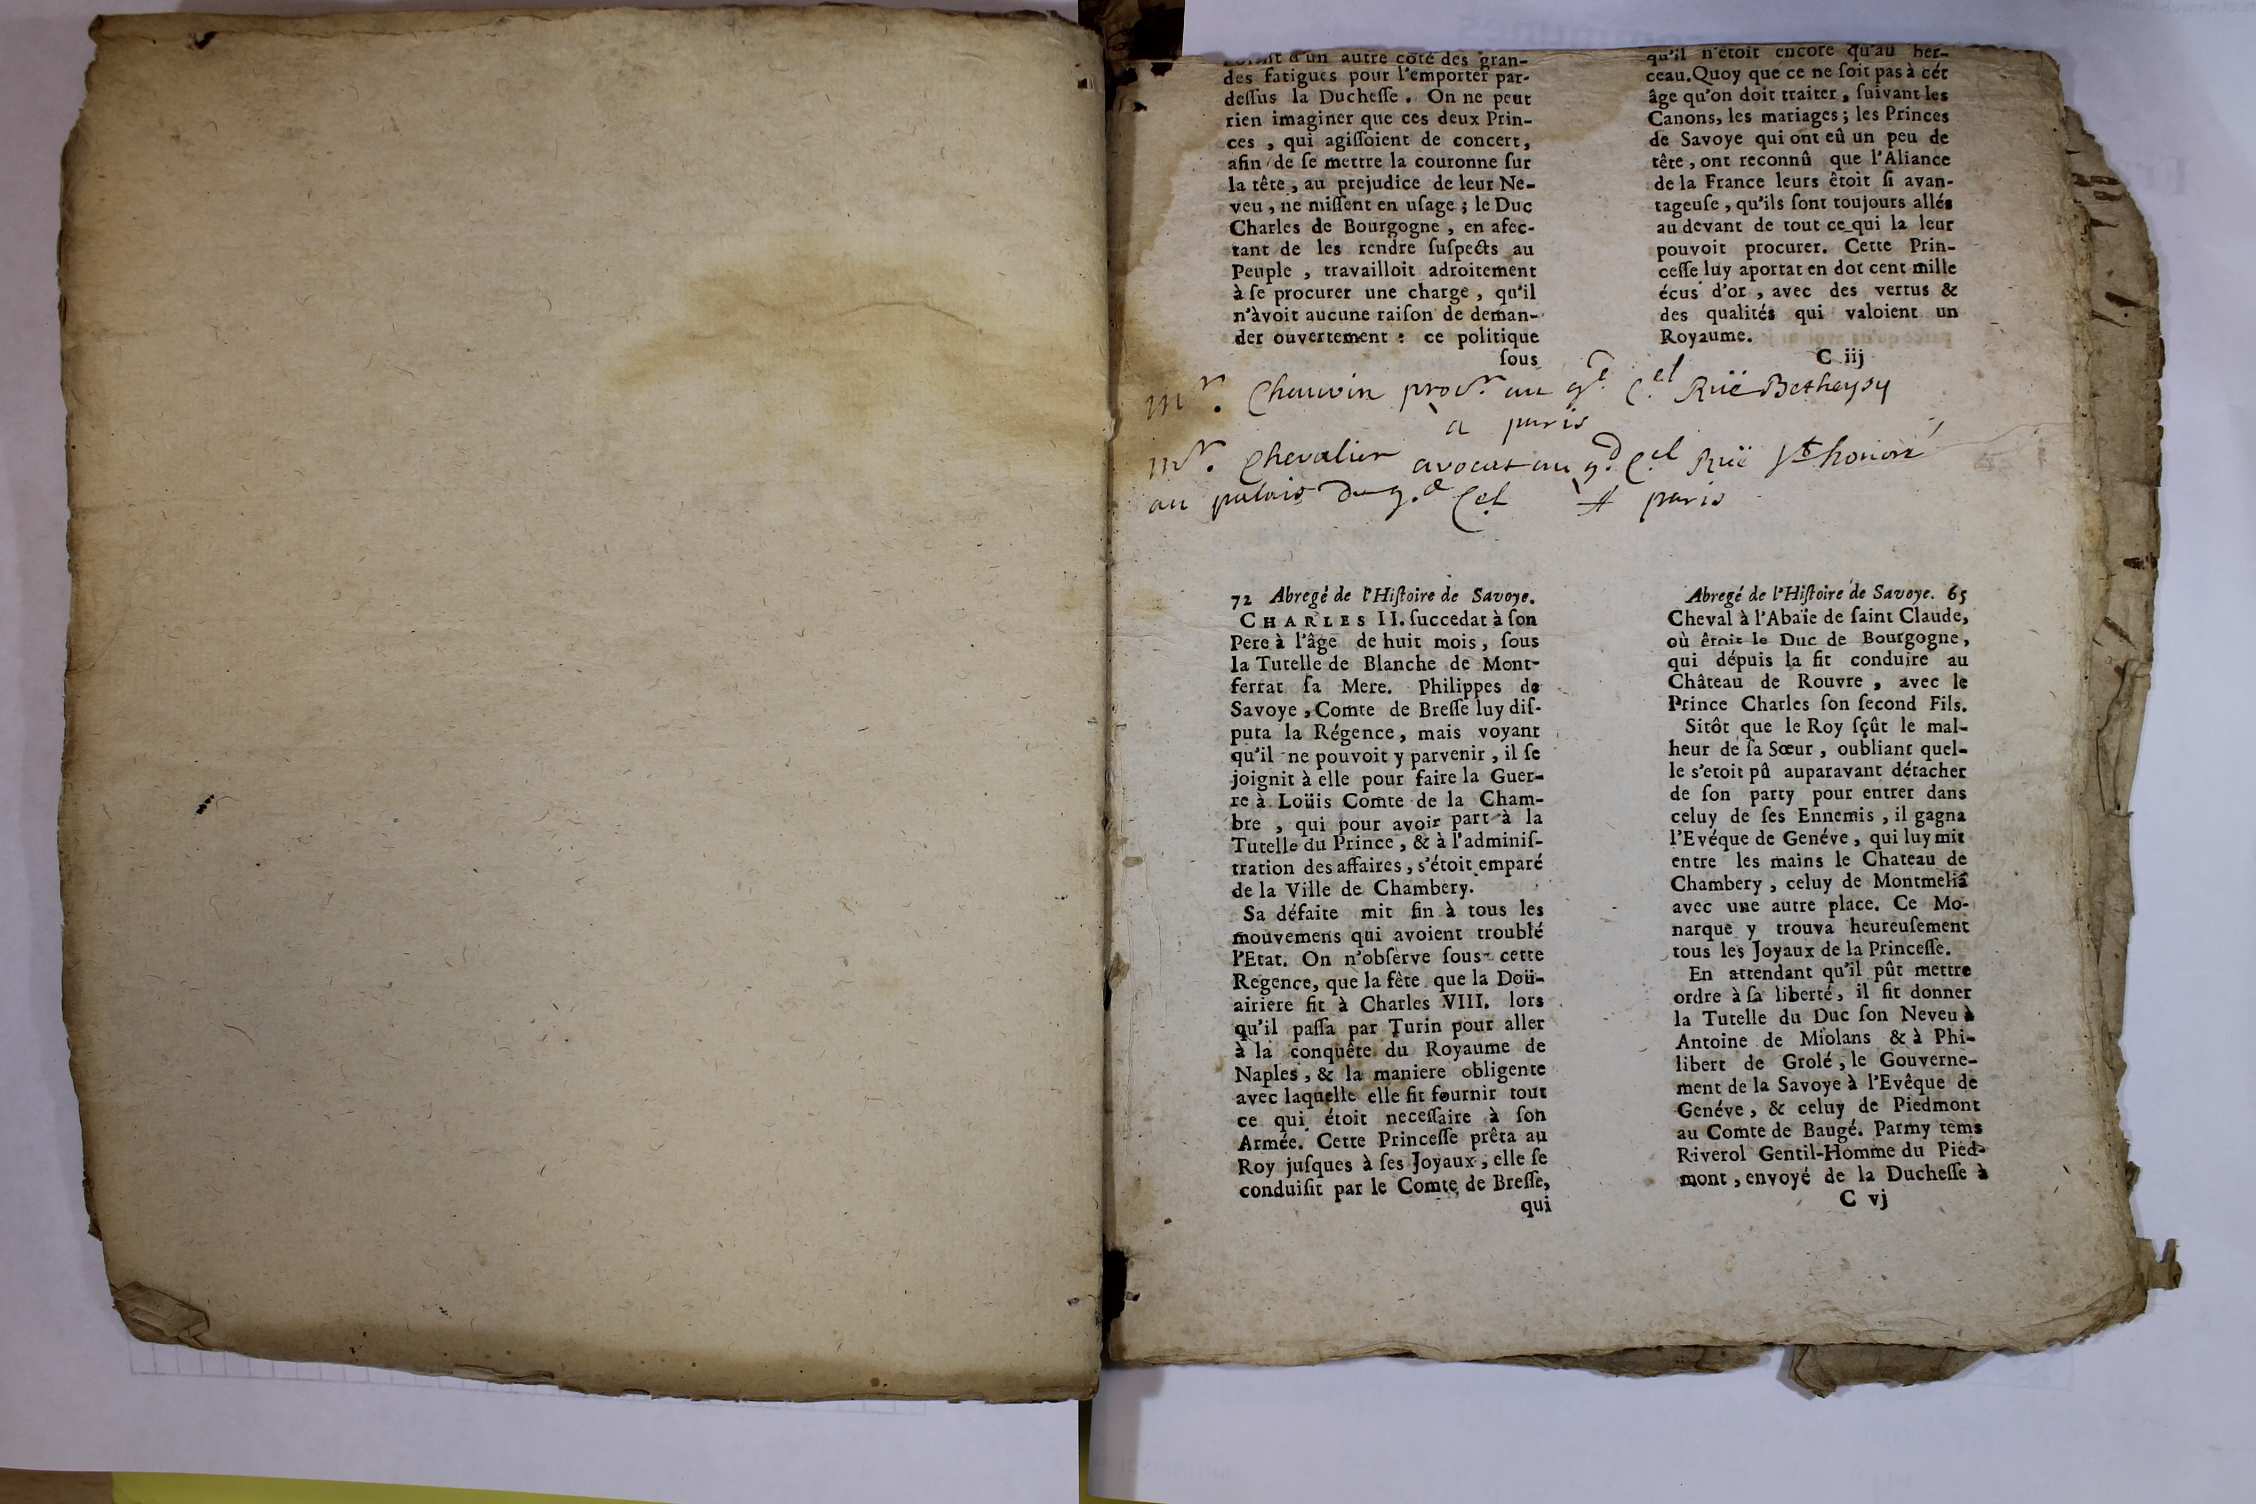 d'un autre côté des gran-
des fatigues pour l'emporter par-
dessus la Duchesse. On ne peut
rien imaginer que ces deux Prin-
ces, qui agissoient de concert,
afin de se mettre la couronne sur
la tête, au prejudice de leur Ne-
veu, ne missent en usage; le Duc
Charles de Bourgogne, en afec-
tant de les rendre suspects au
Peuple, travailloit adroitement
à se procurer une charge, qu'il
n'àvoit aucune raison de deman-
der ouvertement: ce politique
sous
qu'il n'étoit encore qu'au ber-
ceau. Quoy que ce ne soit pas à cét
âge qu'on doit traiter, suivant les
Canons, les mariages; les Princes
de Savoye qui ont eû un peu de
tête, ont reconnû que l'Aliance
de la France leurs êtoit si avan-
tageuse, qu'ils sont toujours allés
au devant de tout ce qui la leur
pouvoit procurer. Cette Prin-
cesse luy aportat en dot cent mille
écus d'or, avec des vertus &
des qualités qui valoient un
Royaume.
C iij
Mr. Chauvin procr. au gr. Cel Ruë Betheysy
a paris
Mr. Chevalier avocat au gd. Cel Ruë St honoré
au palais du gd. Cel A paris
72 Abregé de l'Histoire de Savoye.
CHARLES II. succedat à son
Pere à l'âge de huit mois, sous
la Tutelle de Blanche de Mont-
ferrat sa Mere. Philippes de
Savoye, Comte de Bresse luy dis-
puta la Régence, mais voyant
qu'il ne pouvoit y parvenir, il se
joignit à elle pour faire la Guer-
re à Loüis Comte de la Cham-
bre, qui pour avoir part à la
Tutelle du Prince, & à l'adminis-
tration des affaires, s'étoit emparé
de la Ville de Chambery.
Sa défaite mit fin à tous les
mouvemens qui avoient troublé
l'Etat. On n'observe sous cette
Regence, que la fête que la Doü-
airiere fit à Charles VIII. lors
qu'il passa par Turin pour aller
à la conquête du Royaume de
Naples, & la maniere obligente
avec laquelle elle fit fournir tout
ce qui étoit necessaire à son
Armée. Cette Princesse prêta au
Roy jusques à ses Joyaux, elle se
conduisit par le Comte de Bresse,
qui
Abregé de l'Histoire de Savoye. 65
Cheval à l'Abaïe de saint Claude,
où êtoit le Duc de Bourgogne,
qui dépuis la fit conduire au
Château de Rouvre, avec le
Prince Charles son second Fils.
Sitôt que le Roy sçût le mal-
heur de sa Sœur, oubliant quel-
le s'etoit pû auparavant détacher
de son party pour entrer dans
celuy de ses Ennemis, il gagna
l'Evéque de Genéve, qui luy mit
entre les mains le Chateau de
Chambery, celuy de Montmeliã
avec une autre place. Ce Mo-
narque y trouva heureusement
tous les Joyaux de la Princesse.
En attendant qu'il pût mettre
ordre à sa liberté, il fit donner
la Tutelle du Duc son Neveu à
Antoine de Miolans & à Phi-
libert de Grolé, le Gouverne-
ment de la Savoye à l'Evêque de
Genéve, & celuy de Piedmont
au Comte de Baugé. Parmy tems
Riverol Gentil-Homme du Pied-
mont, envoyé de la Duchesse à
C vj